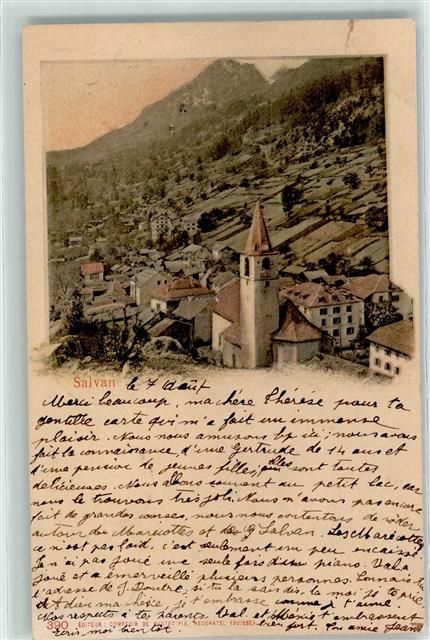 Salvan le 7 Août
Merci beaucoup, ma chère Thérèse pour ta
gentille carte qui m'a fait un immense
plaisir. Nous nous amusons bp ici; nous avons
fait la connaissance d'une Gertrude de 14 ans et
d'une pension de jeunes filles, elles sont toutes
délicieuses. Nous allons souvent au petit lac, car
nous le trouvons très joli. Nous n'avons pas encore
fait de grandes courses, nous nous contentons de rôder
autour des Marécottes et des G. Salvan. Les Marécottes
ce n'est pas laid, c'est seulement un peu encaissé
Je n'ai pas joué une seule fois du piano. Val a
joué et a émerveillé plusieurs personnes. Connais-tu
l'adresse de J. si tu la sais dis-la moi je te prie
et adieu ma chère, je t'embrasse comme je t'aime
Nos respects à tes parents. Val et t'embrassent
Ecris moi bientôt bien fort. Ton amie
390 EDITEUR: COMPTOIR DE PHOTOTYPIE, NEUCHATEL (SUISSE)